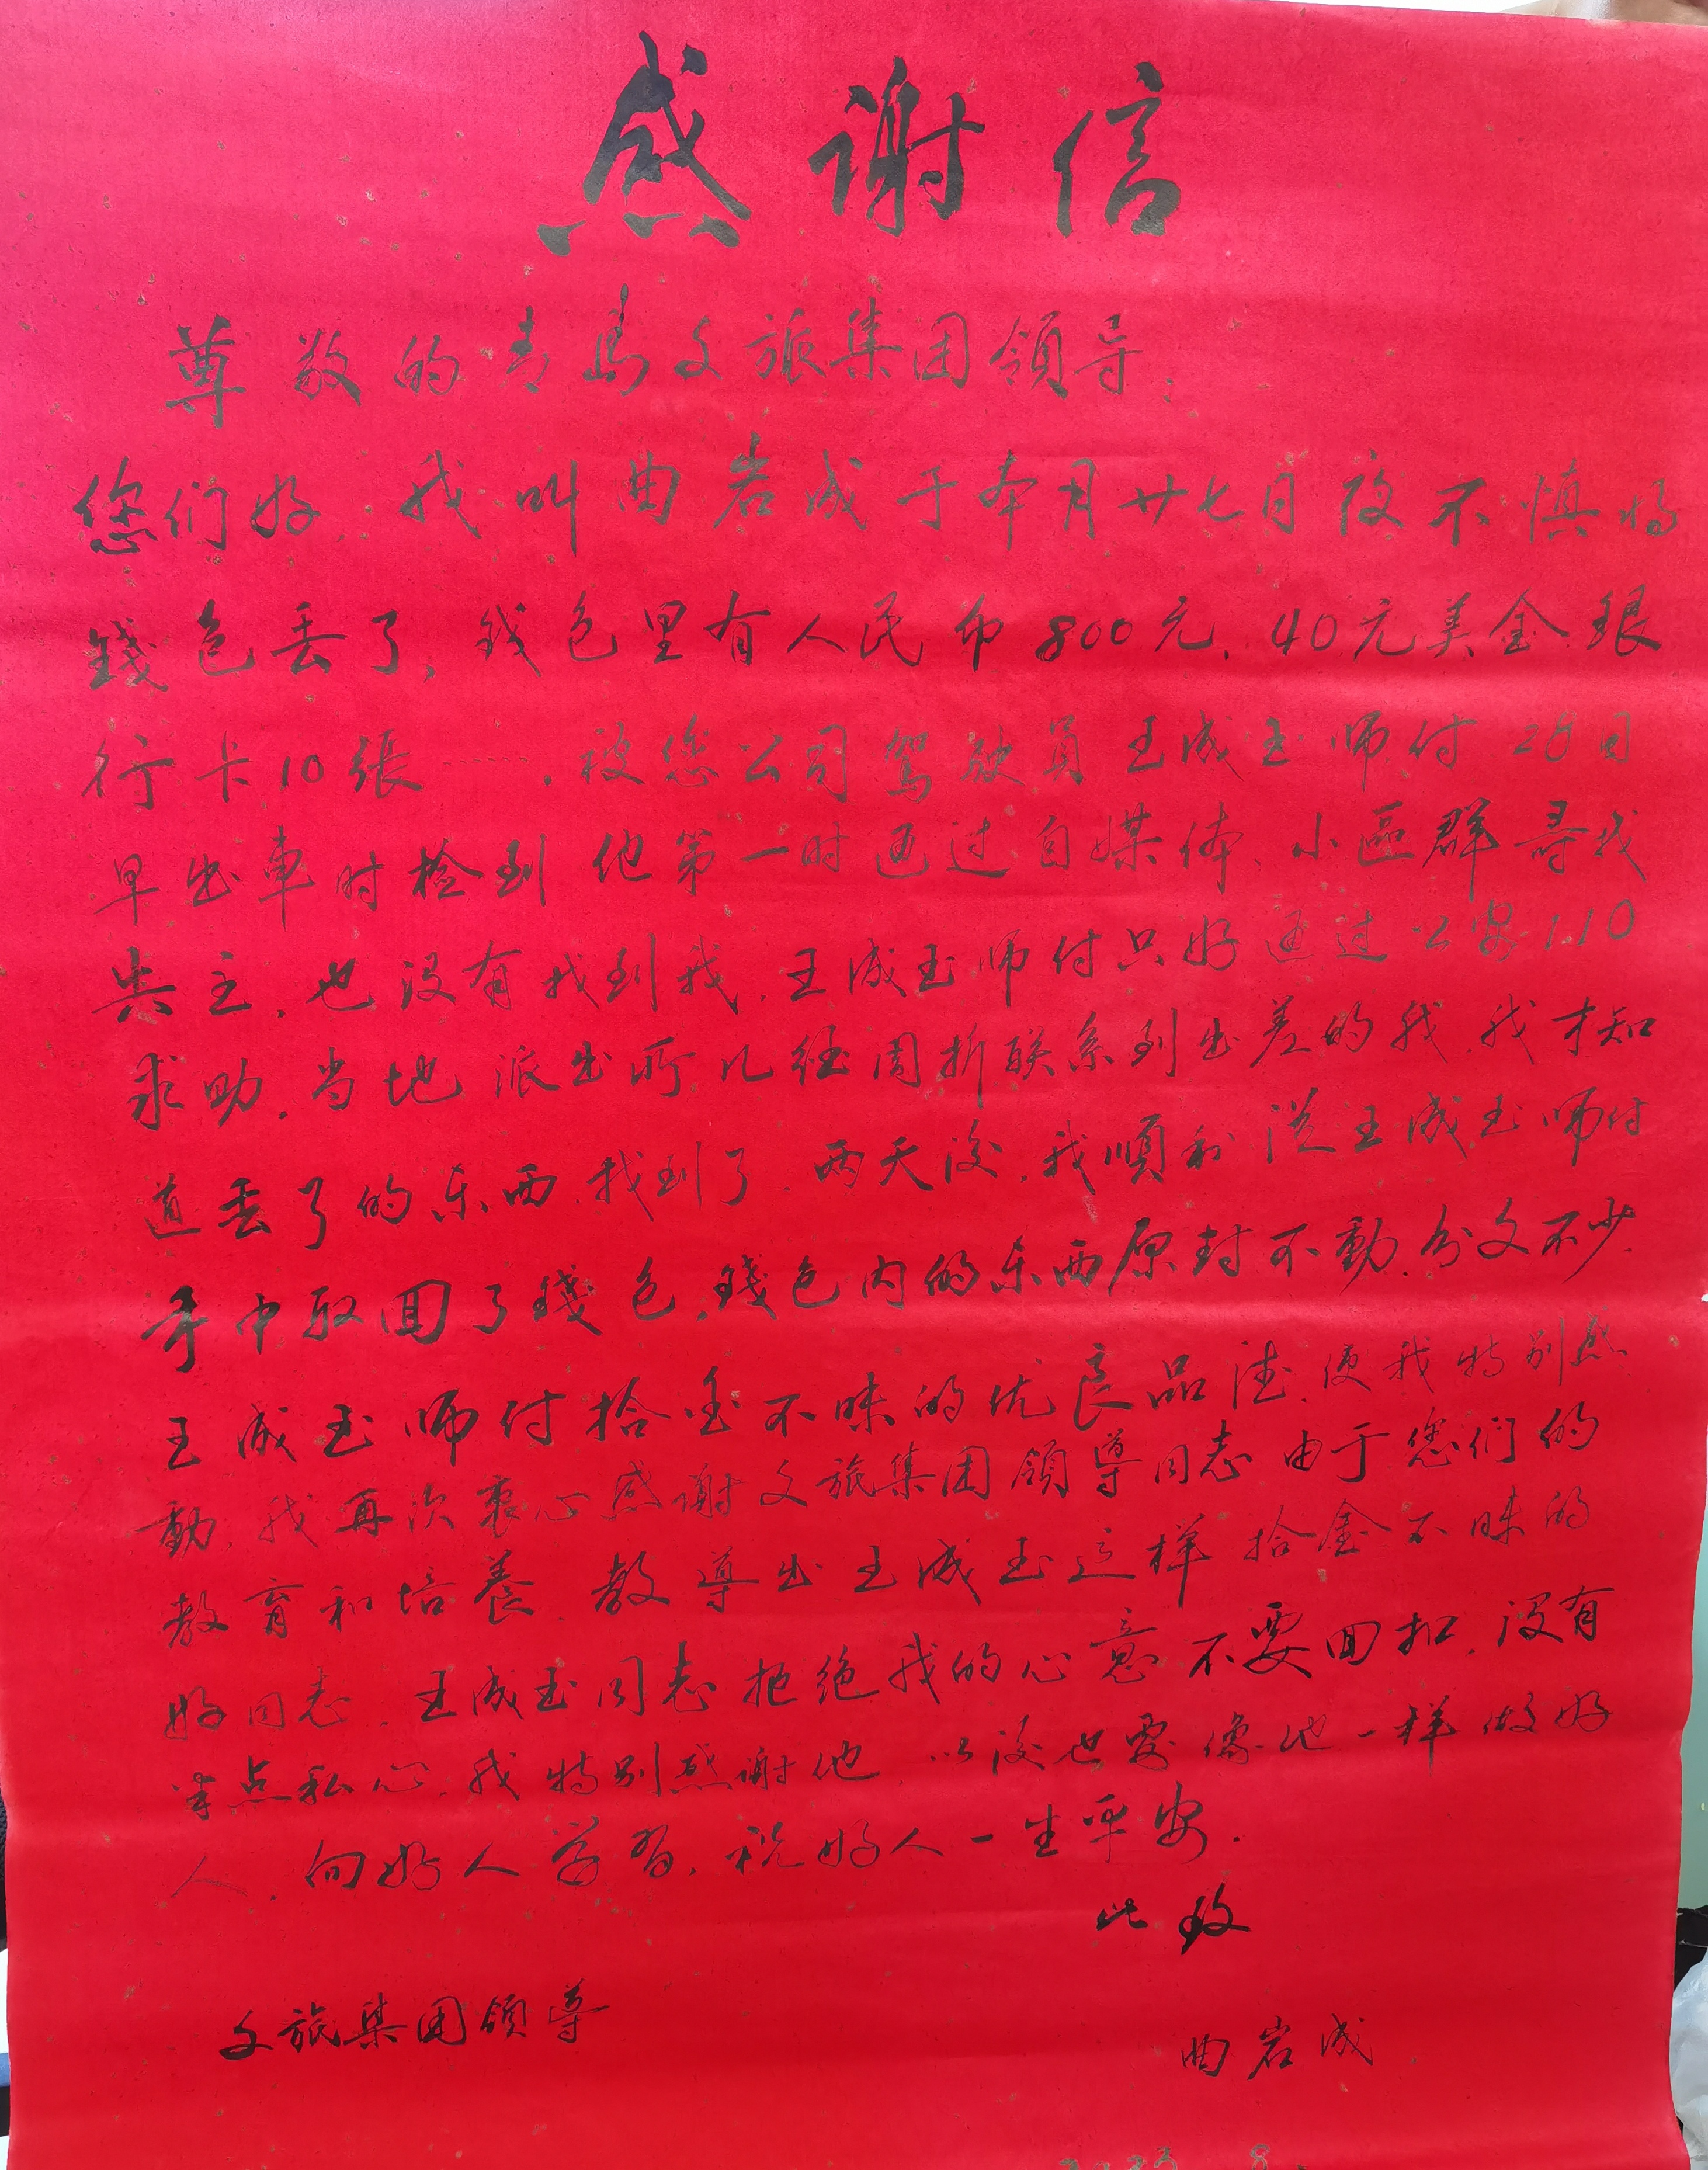 感谢信
尊敬的青島文旅集团領导：
您们好，我叫曲岩成于本月廿七日夜不慎将
錢包丢了，钱包里有人民币800元、40元美金、银
行卡10張……，被您公司驾驶員王成玉师付28日
早出車时检到 他第一时通过自媒体、小區群寻找
失主，也没有找到我，王成玉师付只好通过公安110
求助，当地派出所几经周折联系到出差的我，我才知
道丢了的东西，找到了，两天後，我順利从王成玉师付
手中取回了錢包，錢包内的东西原封不動，分文不少，
王成玉师付拾金不昧的优良品德，使我特别感
動，我再次衷心感谢文旅集团領導同志由于您们的
教育和培養，教導出王成玉这样拾金不昧的
好同志，王成玉同志拒绝我的心意不要回扣，没有
半点私心，我特别感谢他，以後也要像他一样做好
人，向好人学習，祝好人一生平安．
此致
文旅集团領導
曲岩成